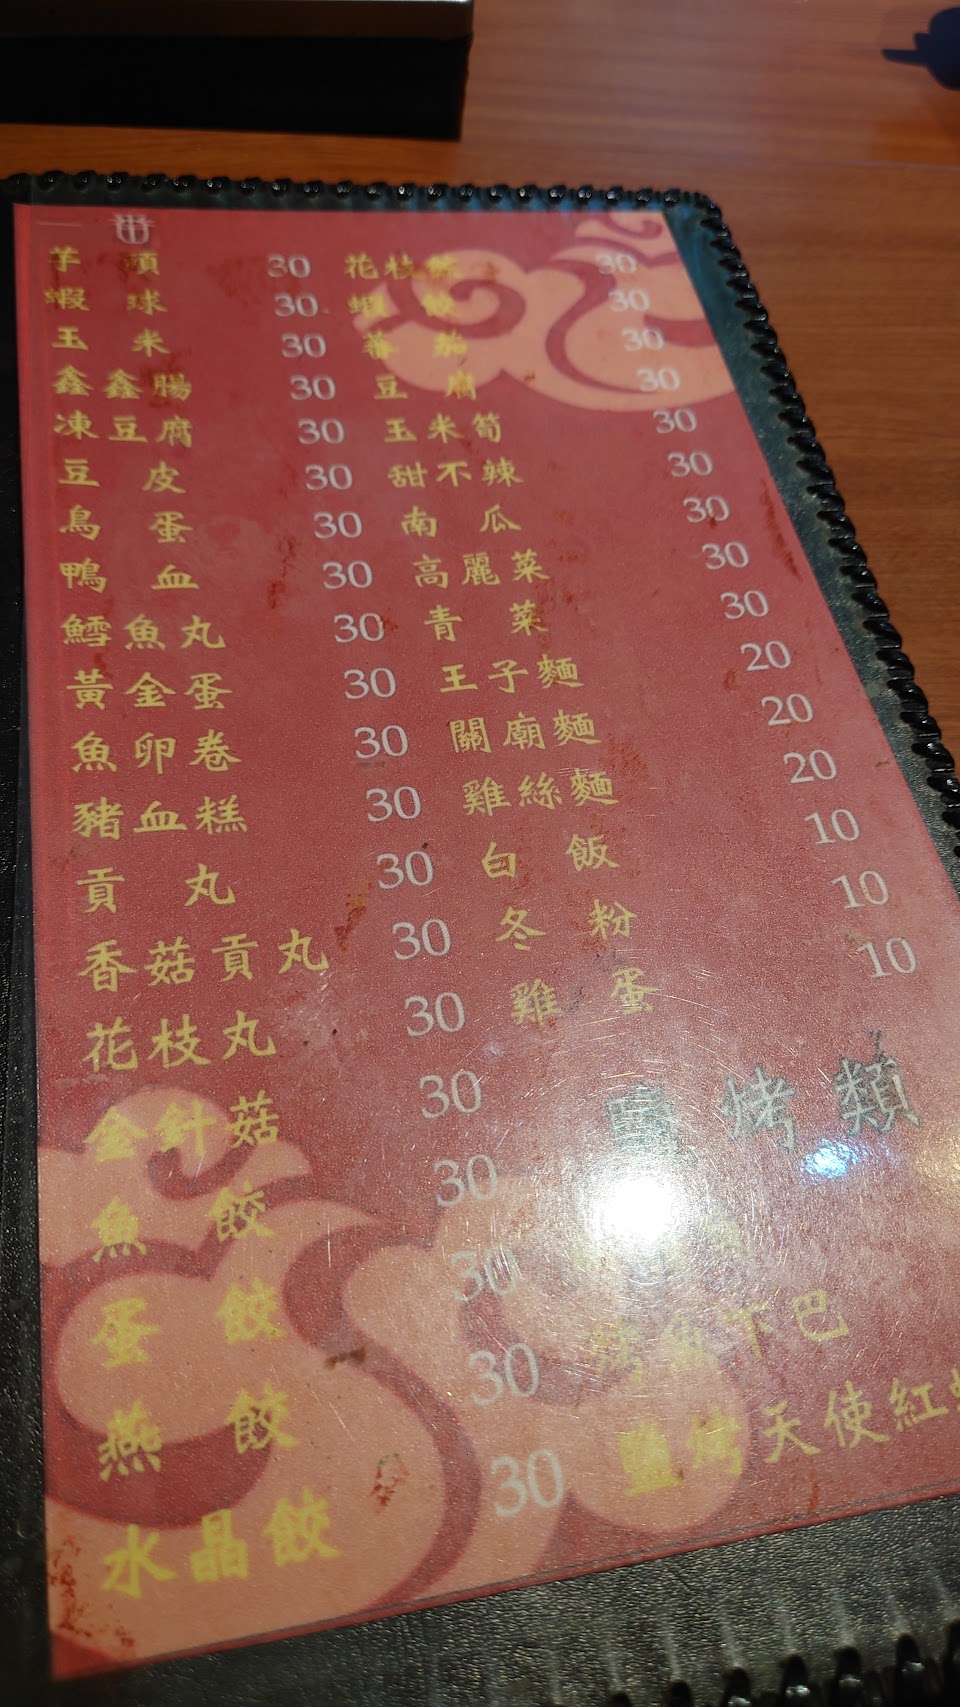 一番
芋頭 30
蝦球 30
玉米 30
鑫鑫腸 30
凍豆腐 30
豆皮 30
鳥蛋 30
鴨血 30
鱈魚丸 30
黃金蛋 30
魚卵卷 30
豬血糕 30
貢丸 30
香菇貢丸 30
花枝丸 30
金針菇 30
魚餃 30
蛋餃 30
燕餃 30
水晶餃 30
花枝餃 30
蝦餃 30
蕃茄 30
豆腐 30
玉米筍 30
甜不辣 30
南瓜 30
高麗菜 30
青菜 30
王子麵 20
關廟麵 20
雞絲麵 20
白飯 10
冬粉 10
雞蛋 10
烤類
烤魚下巴
鹽烤天使紅